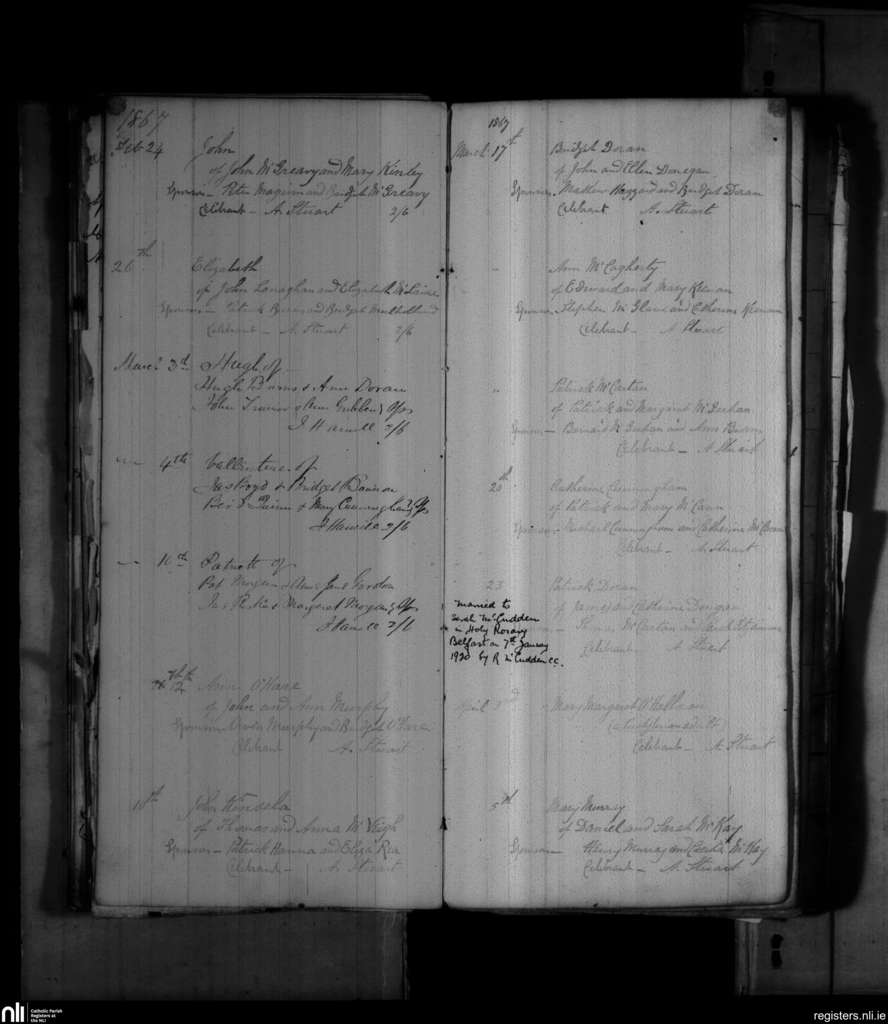 1867
Feb 24
John
of John McGreavy and Mary Kinley
Sponsors - Peter Maginn and Bridget McGreavy
Celebrant - A. Stuart 2/6
26th
Elizabeth
of John Lanaghan and Elizabeth
Sponsors - Patrick Burns and Bridget Mulholland
Celebrant - A. Stuart 2/6
March 3rd Hugh of
Hugh Burns & Ann Doran
John Trainor & Ann Gribben Sps
2/6
4th Vallentine of
Jas Boyd & Bridget
& Mary Cunningham Sps
2/6
16th Patrick of
Pat Morgan & Jane Gordon
& Margaret Morgan Sps
2/6
12th
Ann O'Hare
of John and Ann Murphy
Sponsors Owen Murphy and Bridget O'Hare
Celebrant A. Stuart
John Kinsela
of Thomas and Anna McVeigh
Sponsors - Patrick Hanna and Eliza Rea
Celebrant - A. Stuart
1867
March 17th Bridget Doran
of John and Ellen Donegan
Sponsors Mathew Haggard and Bridget Doran
Celebrant A. Stuart
Ann McCagherty
of Edward and Mary Keenan
Sponsors Stephen and Catherine Keenan
Celebrant - A Stuart
" Patrick McCartan
of Patrick and Margaret
Sponsors - Bernard and Ann Burns
Celebrant - A Stuart
20th
Catherine Cunningham
of Patrick and Mary McCann
Sponsors Michael Cunningham and Catherine McCann
Celebrant - A. Stuart
23 Patrick Doran
of James and Catherine Donegan
McCartan and
Celebrant A Stuart
married to
Sarah McCudden
in Holy Rosary
Belfast on 7th January
1920 by R McCudden cc.
April 3rd
Mary Margaret
Celebrant - A. Stuart
5th
Mary Murray
of Daniel and Sarah McKay
Sponsors Henry Murray and Cecilia McKay
Celebrant - A. Stuart
nli
Catholic Parish
Registers at
the NLI
registers.nli.ie